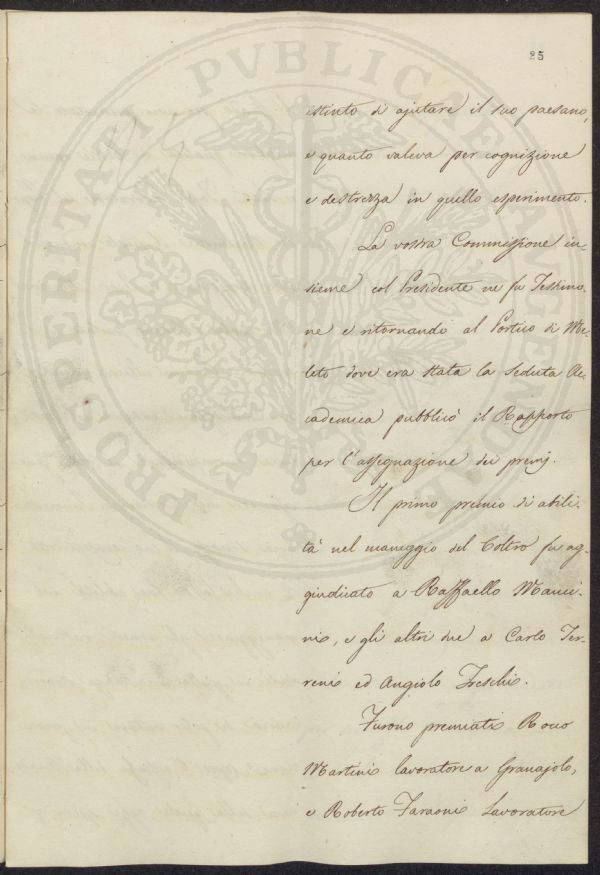 25
istinto di ajutare il suo paesano,
e quanto valeva per cognizione
e destrezza in quello esperimento.
La vostra Commissione in-
sieme col Presidente ne fu Testimo-
ne e ritornando al Portico di Me-
leto dove era stata la seduta Ac-
cademica pubblicò il Rapporto
per l'assegnazione dei premj.
Il primo premio di abili-
tà nel maneggio del Coltro fu ag-
giudicato a Raffaello Manci-
ni, e gli altri due a Carlo Ter-
reni ed Angiolo Freschi.
Furono premiati Rocco
Martini lavoratore a Granajolo,
e Roberto Faraoni Lavoratore
PROSPERITATI PVBLICAE AVGENDAE